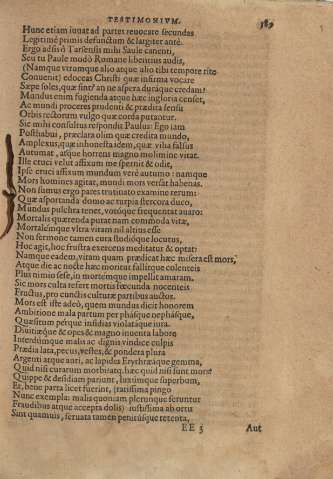 TESTIMONIVM.
Hunc etiam iuuat ad partes reuocare secundas
Legitimè primis defunctum & largiter antè.
Ergo adsis ô Tarsensis mihi Saule canenti,
Seu tu Paule modò Romane libentius audis,
(Namque vtrumque alio atque alio tibi tempore rite
Conuenit) edoceas Christi quæ infirma vocare
Sæpe soles, quæ sint? an ne aspera duraque credam?
Mundus enim fugienda atque hæc ingloria censet,
Ac mundi proceres prudenti & prædita sensu
Orbis rectorum vulgò quæ corda putantur.
Sic mihi consultus respondit Paulus: Ego iam
Posthabui, præclara olim quæ credita mundo,
Amplexus, quæ inhonesta idem, quæ vilia falsus
Autumat, atque horrens magno molimine vitat.
Ille cruci velut affixum me spernit & odit,
Ipse cruci affixum mundum verè autumo: namque
Mors homines agitat, mundi mors versat habenas.
Non sumus ergo pares trutinato examine rerum:
Quæ asportanda domo ac turpia stercora duco,
Mundus pulchra tenet, votisque frequentat auaro:
Mortalis quærenda putat nam commoda vitæ,
Mortalemque vltra vitam nil altius esse
Non sermone tamen cura studióque locutus,
Hoc agit, hoc frustra exercens meditatur & optat:
Namque eadem, vitam quam prædicat hæc misera est mors,
Atque die ac nocte hæc montat fallitque colenteis
Plus nimio sese, in mortemque impellit amaram,
Sic mors culta refert mortis fœcunda nocenteis
Fructus, pro cunctis culturæ partibus auctos.
Mors est iste adeò, quem mundus dicit honorem
Ambitione mala partum per phásque nephásque,
Quæsitum perque insidias violataque iura.
Diuitiæque & opes & magno inuenta labore
Interdumque malis ac dignis vindice culpis
Prædia lata, pecus, vestes, & pondera plura
Argenti atque auri, ac lapides Erythræaque gemma,
Quid nisi curarum morbique, hæc quid nisi sunt mors?
Quippe & desidiam pariunt, luxumque superbum,
Et, bene parta licet fuerint, (ratissima pingo
Nunc exempla: malis quoniam plerunque feruntur
Fraudibus atque accepta dolis) iustissima ab ortu
Sint quamuis, seruata tamen penitúsque retenta,
EE 3 Aut